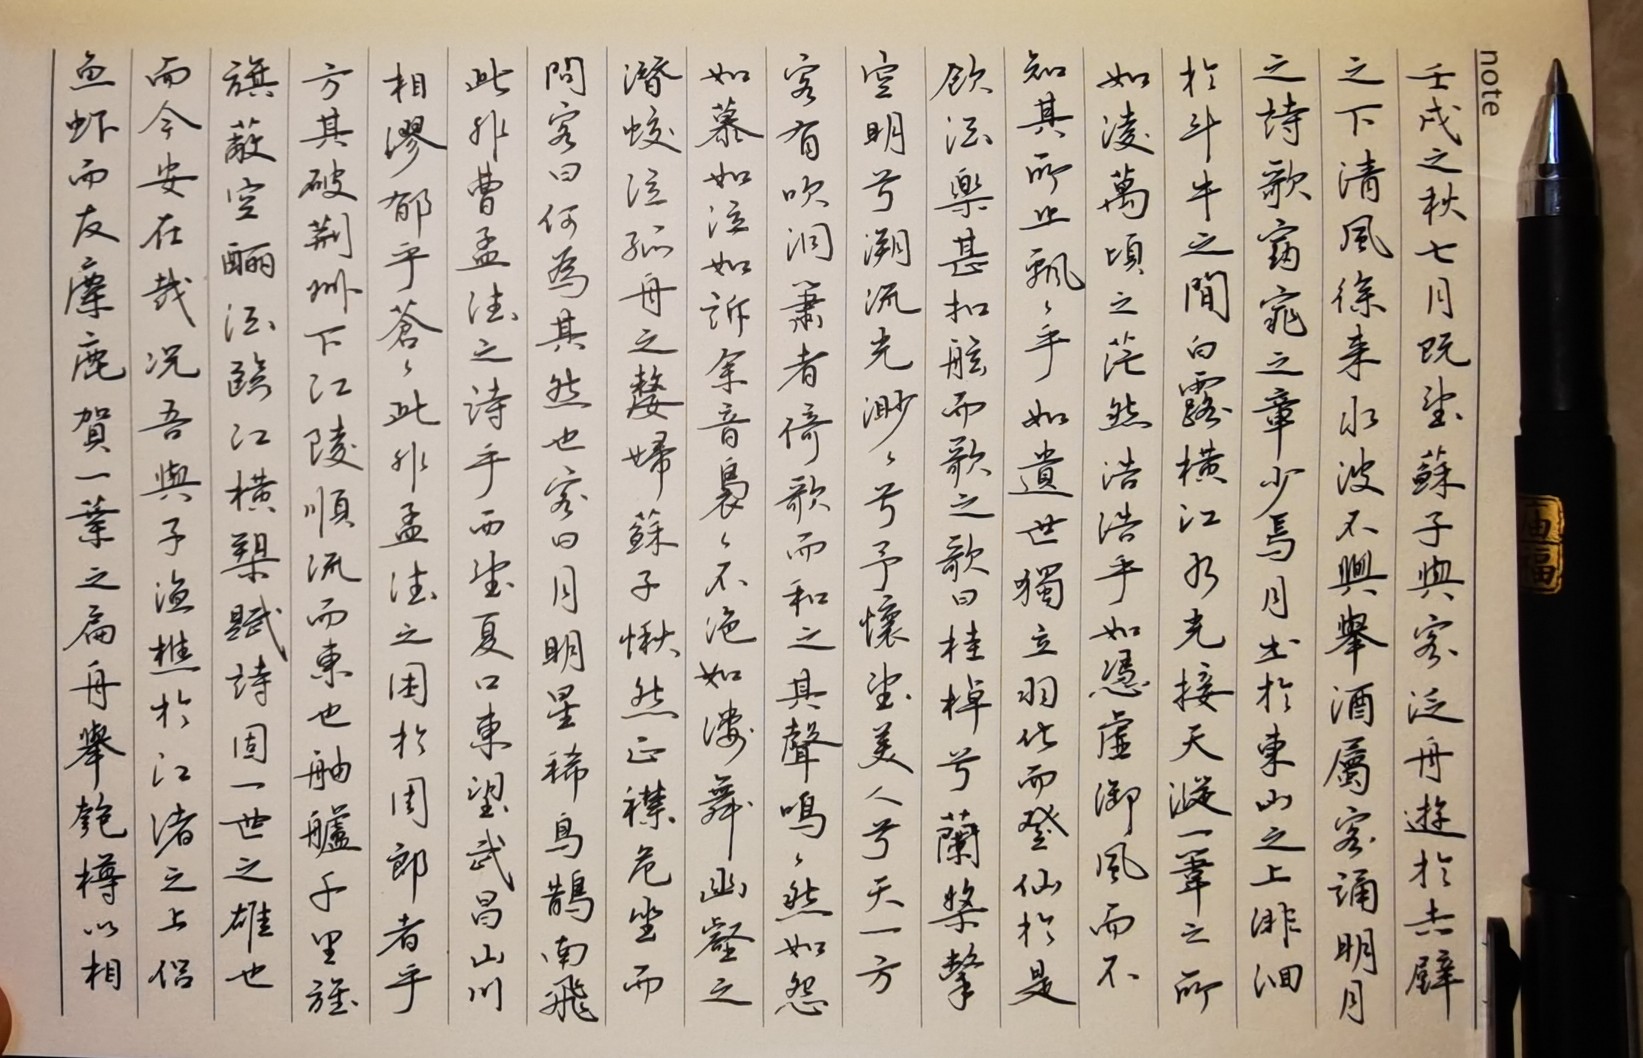 note
壬戌之秋七月既望蘇子與客泛舟遊於赤壁
之下清風徐来水波不興舉酒屬客誦明月
之詩歌窈窕之章少焉月出於東山之上徘徊
於斗牛之間白露横江水光接天縱一葦之所
如淩萬頃之茫然浩浩乎如憑虚御風而不
知其所止飄〻乎如遺世獨立羽化而登仙於是
飲酒樂甚扣舷而歌之歌曰桂棹兮蘭槳擊
空明兮溯流光渺〻兮予懷望美人兮天一方
客有吹洞簫者倚歌而和之其聲鳴〻然如怨
如慕如泣如訴余音裊〻不绝如縷舞幽壑之
潛蛟泣孤舟之嫠婦蘇子愀然正襟危坐而
問客曰何為其然也客曰月明星稀烏鵲南飛
此非曹孟德之詩乎西望夏口東望武昌山川
相繆郁乎蒼〻此非孟德之困於周郎者乎
方其破荆州下江陵順流而東也舳艫千里旌
旗蔽空酾酒臨江横槊賦詩固一世之雄也
而今安在哉况吾與子渔樵於江渚之上侣
鱼虾而友麋鹿賀一葉之扁舟舉匏樽以相